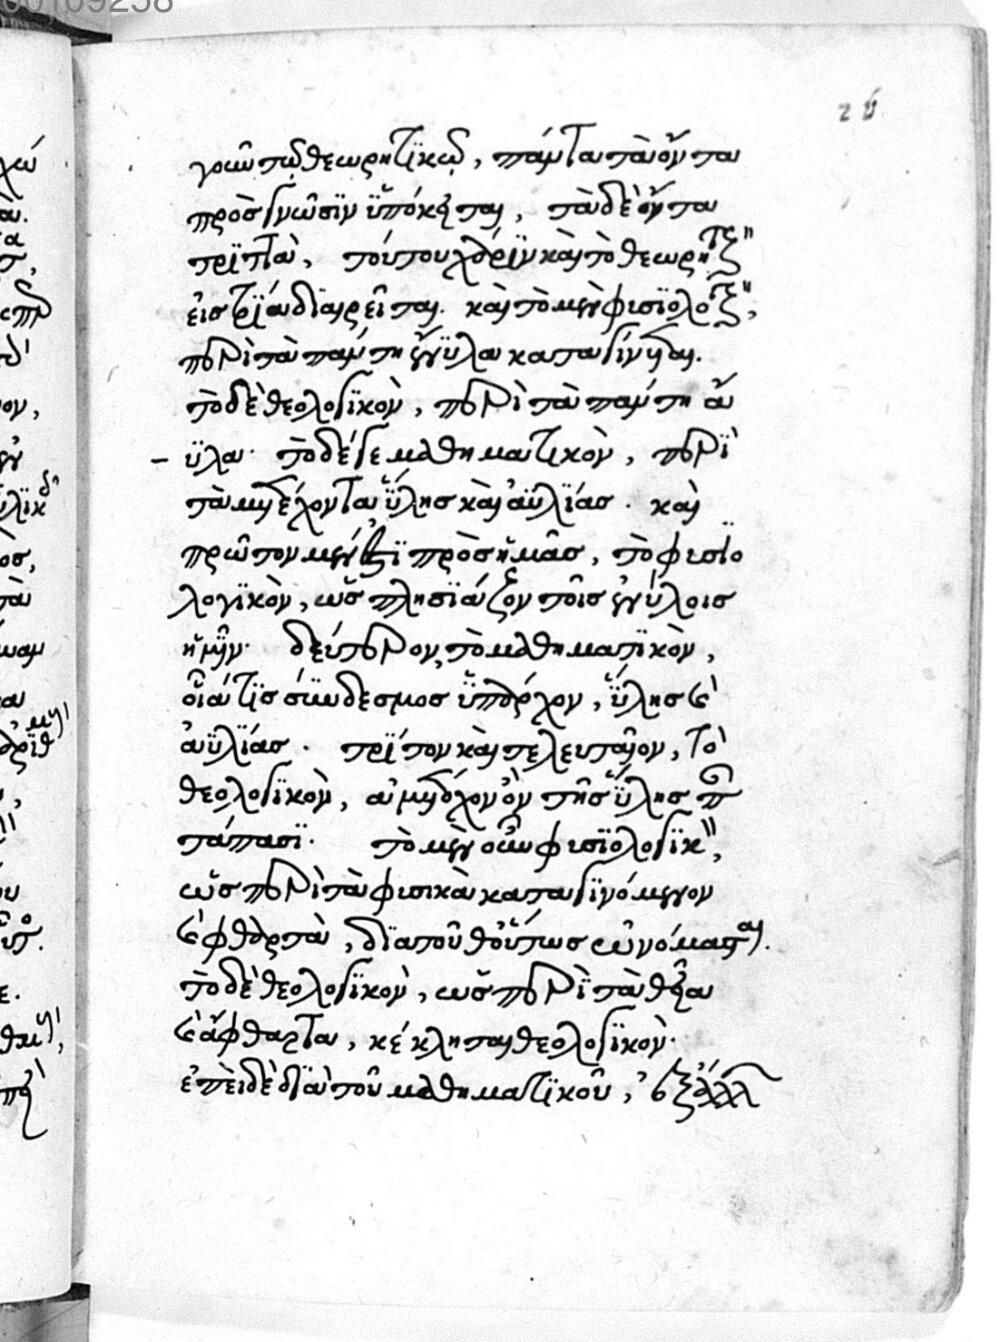 00109258
26
γοῦν τῷ θεωρητικῷ, πάντα τὰ ὄντα
πρὸς γνῶσιν ὑπόκειται, τὰ δὲ ὄντα
τριττὰ, τούτου χάριν καὶ τὸ θεωρητικ
εἰς τρία διαιρεῖται. καὶ τὸ μὲν φισϊολογικ,
περὶ τὰ πάντη ἔνϋλα καταγίνεται.
τὸ δὲ θεολογικὸν, περὶ τὰ πάντη ἄ
ϋλα· τὸ δέ γε μαθηματικὸν, περὶ
τὰ μετέχοντα ὕλης καὶ ἀϋλίας. καὶ
πρῶτον μέν ἐστι πρὸς ἡμᾶς, τὸ φισιο
λογικὸν, ὡς πλησιάζον τοῖς ἐνύλοις
ἡμῖν· δεύτερον, τὸ μαθηματικὸν,
οἷά τις σύνδεσμος ὑπάρχον, ὕλης καὶ
ἀϋλίας. τρίτον καὶ τελευταῖον, τὸ
θεολογικὸν, ἀμέτοχον ὂν τῆς ὕλης π
τάπασι. τὸ μὲν οὖν φισϊολογικ,
ὡς περὶ τὰ φισικὰ καταγινόμενον
καὶ φθαρτὰ, διατοῦθ' οὕτως ὠνόμασται.
τὸ δὲ θεολογικὸν, ὡς περὶ τὰ θεῖα
καὶ ἄφθαρτα, κέκληται θεολογικὸν·
ἐπειδὲ διὰ τοῦ μαθηματικοῦ,